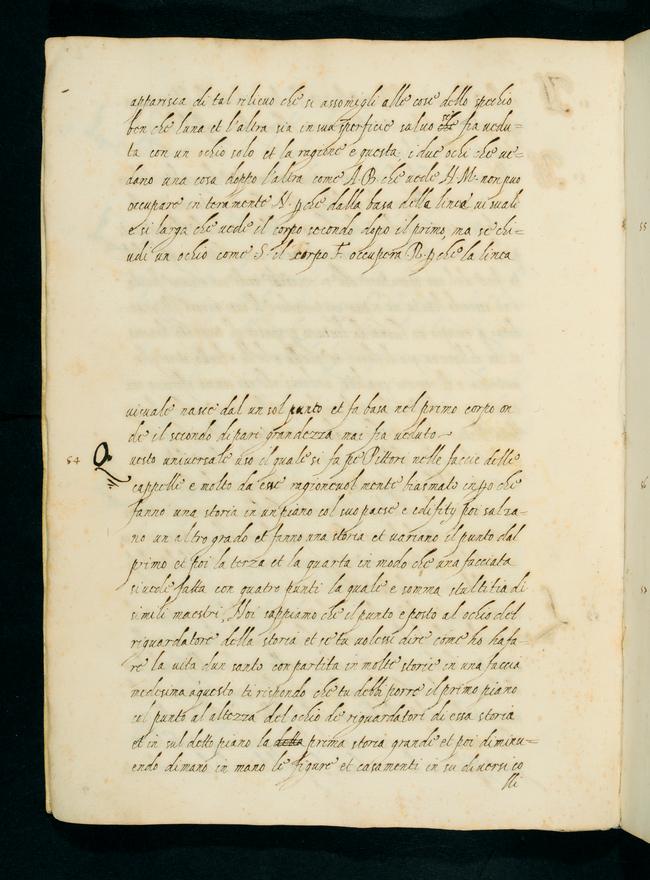 apparisca di tal rilieuo che si assomigli alle cose dello spechio
ben che luna et l'altra sia in sua sperficie saluo se fia uedu=
ta con un ochio solo et la ragione e questa, i due ochi che ue=
dano una cosa doppo l'altra come A. B. che uede H. M. non puo
occupare in teramente N. p che dalla basa delle linee uisuali
e si larga che uede il corpo secondo dopo il primo, ma se chi=
udi un ochio come S. il corpo F. occupera R. p che la linea
uisuale nasce dal un sol punto et fa basa nel primo corpo on
de il secondo di pari grandezza mai fia ueduto
54 Q
uesto uniuersale uso il quale si fa pe Pittori nelle faccie delle
cappelle e molto da esse ragioneuol mente biasmato inpo che
fanno una storia in un piano col suo paese e edifity poi salza=
no un altro grado et fanno una storia et uariano il punto dal
primo et poi la terza et la quarta in modo che una facciata
si uede fatta con quatro punti la quale e somma stultitia di
simili maestri, Noi sappiamo che il punto e posto al ochio del
riguardatore della storia et se tu uolessi dire come ho hafa=
re la uita dun santo conpartita in molte storie in una faccia
medesima aquesto ti rispondo che tu debbi porre il primo piano
col punto al altezza del ochio de riguardatori di essa storia
et in sul detto piano la detta prima storia grande et poi diminu=
endo dimano in mano le figure et casamenti in su diuersi co
lli
55
56